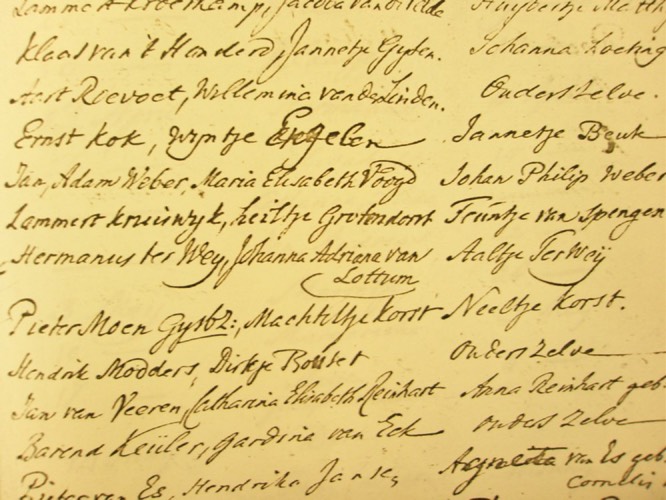 Lammert Kroeskamp, Jacoba van Huybertje Matth
Klaas van 't Handerd, Jannetje Gysen. Johanna
Aart Roevoet, Willemina van der Linden. Ouders zelve.
Ernst Kok, Wyntje Engelen Jannetje Beuk
Jan, Adam Weber, Maria Elisabeth Voogd Johan Philip Weber
Lammert Kruiswyk, heiltje Grotendorst Teuntje van Spengen
Hermanus ter Wey, Johanna Adriana van Aaltje Ter Weij
Lottum
Pieter Moen Gysbz:, Machteltje Korst Neeltje Korst.
Hendrik Modders, Dirkje Ouders zelve
Jan van Veeren, Catharina Elisabeth Reinhart Anna Reinhart geb
Barend Keüler, Gardina van Eck ouders zelve
Pieter van Es, Hendrika Janse, Agneita van Es geb.
Cornelis